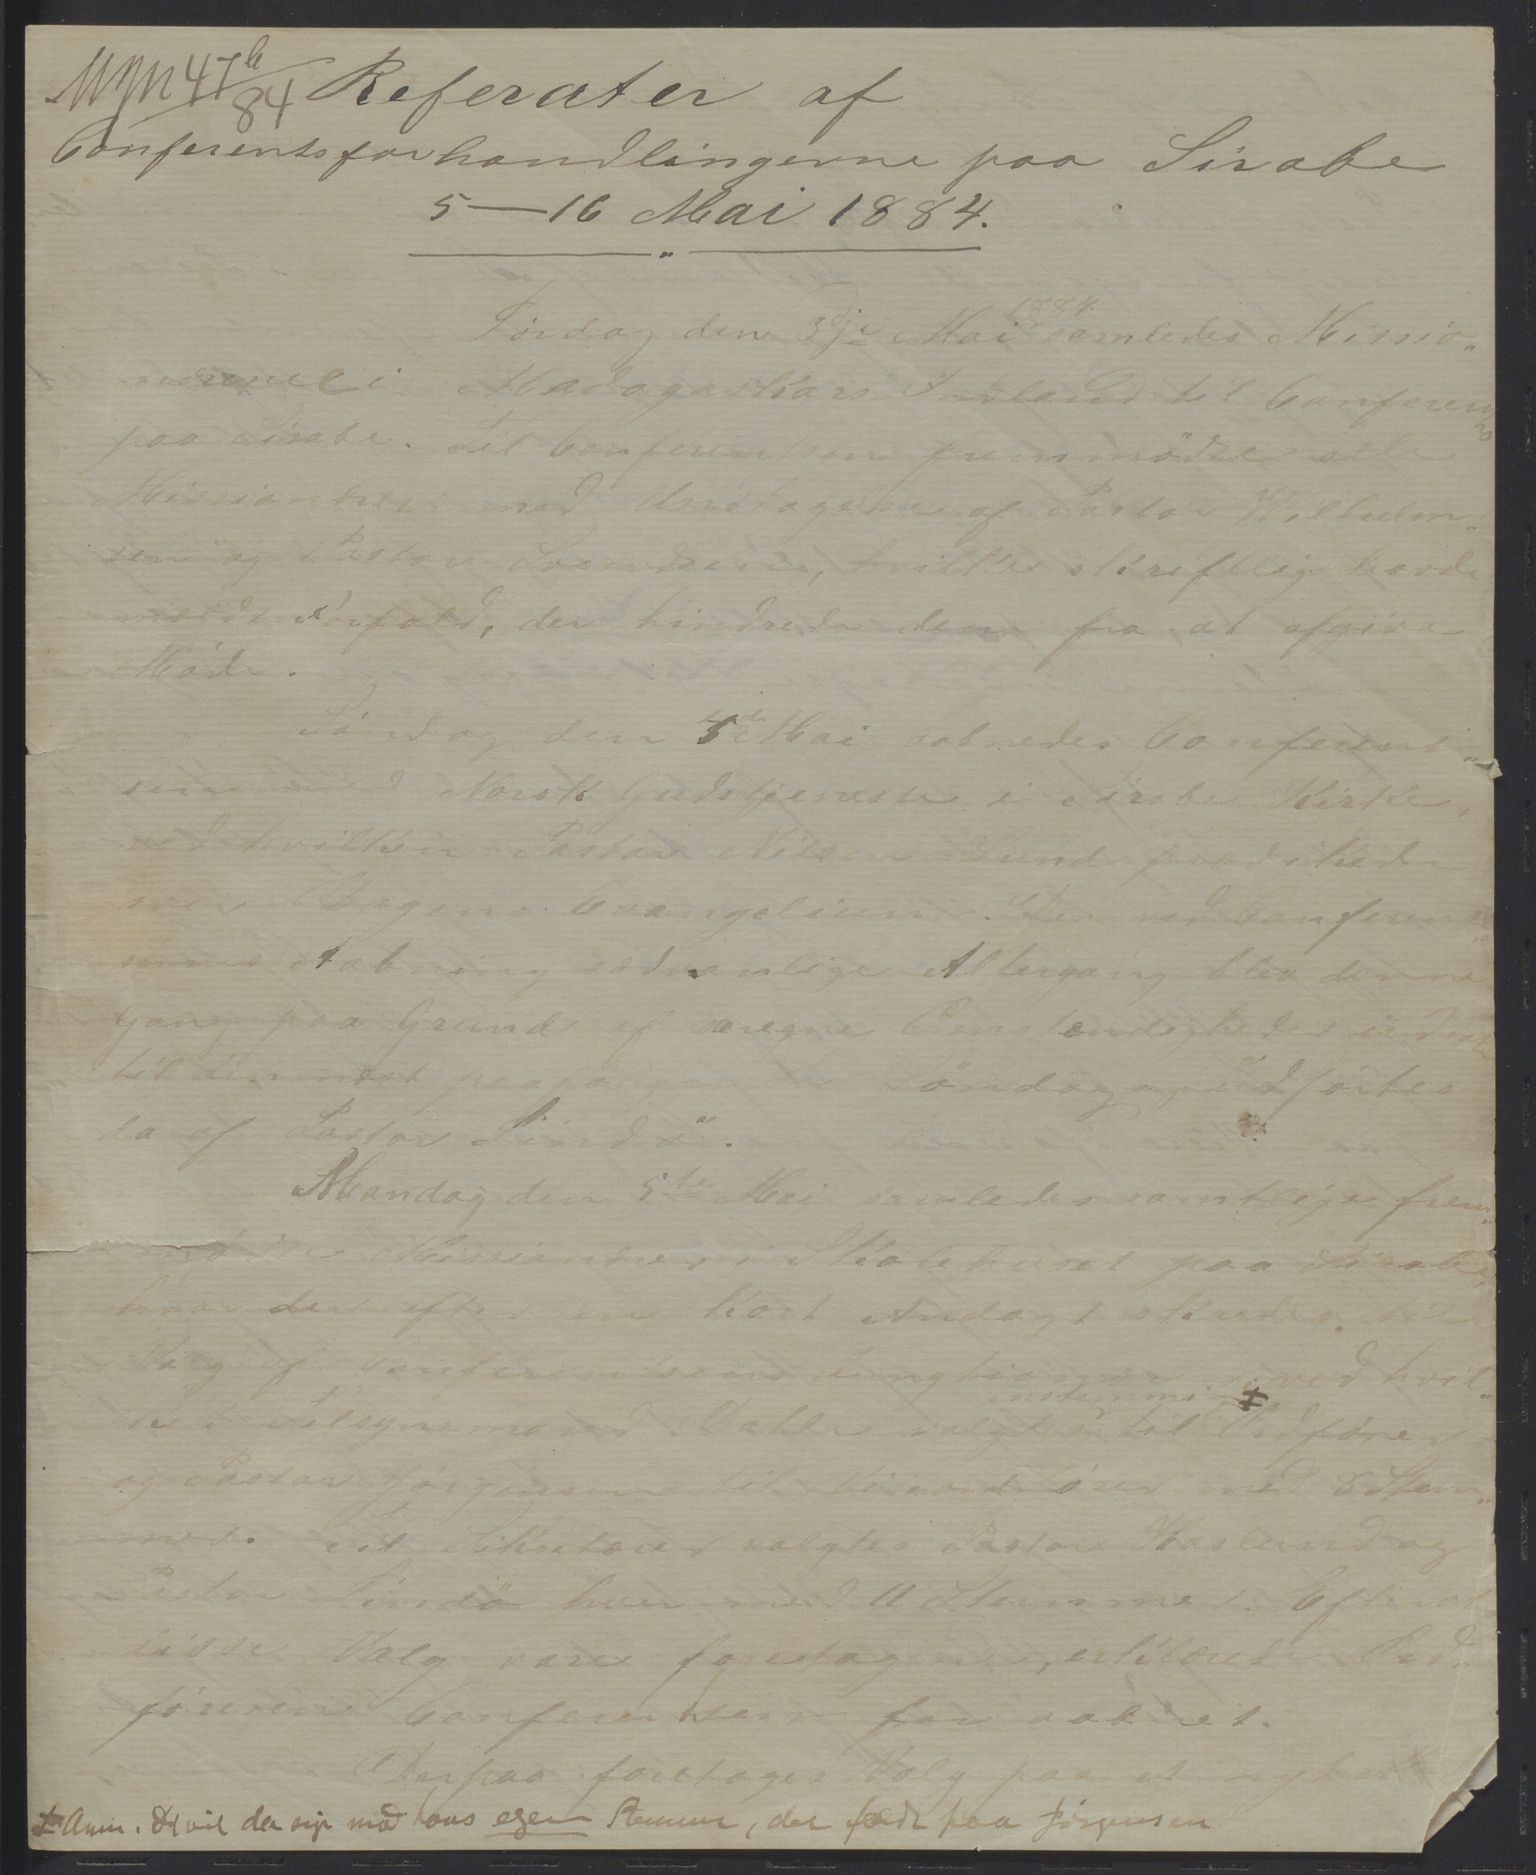 Mgn 47b/84 Referater af
Conferentsforhandlingerne paa Sirabe
5—16 Mai 1884.
Lørdag den 3dje Mai 1884 samledes Missio„
nærerne i Madagaskars Indland til Conferents
paa Sirabe. Til Conferentsen fremmødte alle
Missionærer med Undtagelse af Pastor Wilhelm„
sen og Pastor Svendsen, hvilke skriftlig havde
meldt Forfald, der hindrede dem fra at afgive
Møde.
Søndag den 4de Mai aabnedes Conferent„
sen med Norsk Gudstjeneste i Sirabe Kirke,
ved hvilken Pastor Nilsen-Lund prædikede
over Dagens Evangelium. Den ved Conferent„
sernes Aabning sædvanlige Altergang blev denne
Gang paa Grund af egne Omstændigheder udsat
til den næst paafølgende Søndag og udførtes
da af Pastor Lindø.
Mandag den 5te Mai samledes samtlige frem„
mødte Missionærer i Skolehuset paa Sirabe,
hvor der efter en kort Andagt skredes til
Valg af Conferentsens Funktionærer, ved hvil„
ket Tilsynsmand Dahle valgtes enstemmig ‡ til Ordfører
og Pastor Jørgensen til Viceordfører med 8 Stem„
mer. Til Sekretærer valgtes Pastor Haslund og
Pastor Lindø hver med 11 Stemmer. Efterat
disse Valg vare foretagne, erklærede Ord„
føreren Conferentsen for aabnet.
Derpaa foretoges Valg paa et nyt
‡ Anm. Det vil da sige med hans egen Stemme, der faldt paa Jørgensen